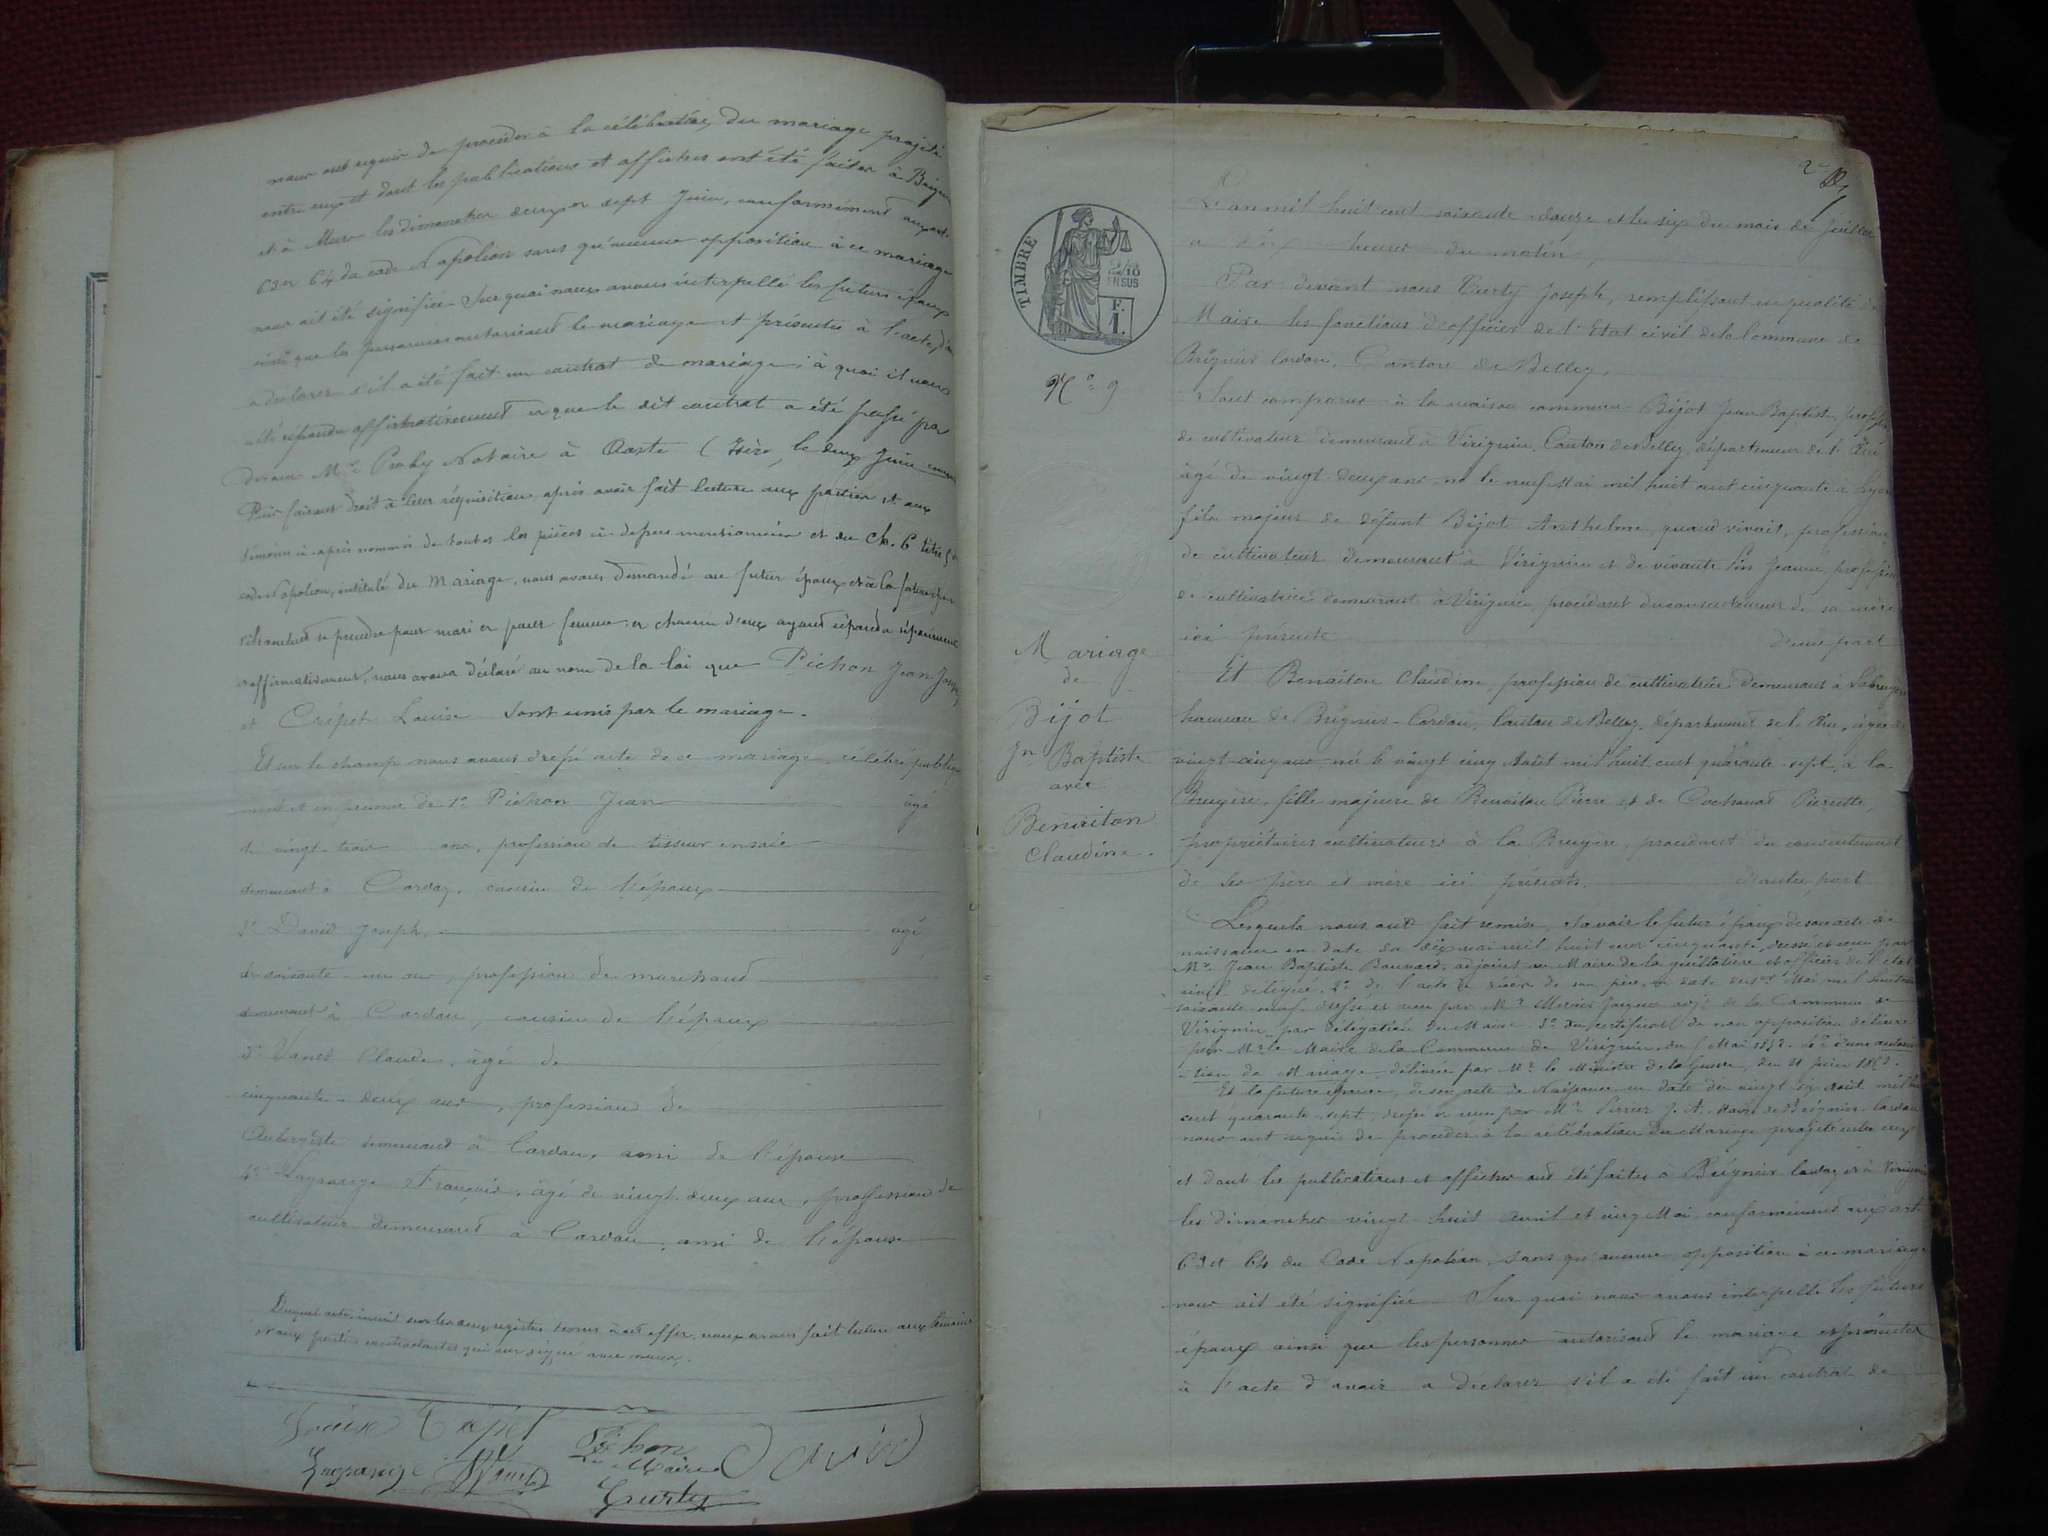 nous ont requis de procéder à la célébration du mariage projeté
entre eux et dont les publications et affiches ont été faites à
et à Murs les dimanches deux et sept Juin, conformément aux art.
63 et 64 du code Napoléon sans qu'aucune opposition à ce mariage
nous ait été signifiée. Sur quoi nous avons interpellé les futurs époux
ainsi que les personnes autorisant le mariage et présentes à l'acte, d'
a déclarer s'il a été fait un contrat de mariage; à quoi il nous
a été répondu affirmativement et que le dit contrat a été passé par
devant Me Notaire à Aoste (Isère, le deux Juin courant
Puis faisant droit à leur réquisition, après avoir fait lecture aux parties et aux
témoins ci-après nommés de toutes les pièces ci-dessus mentionnées et du Ch. 6 titre 5 du
code Napoléon, intitulé du Mariage, nous avons demandé au futur époux et à la future épouse
s'ils veulent se prendre pour mari et pour femme; et chacun d'eux ayant répondu séparément
et affirmativement, nous avons déclaré au nom de la loi que Pichon Jean Joseph
et Crépet Louise sont unis par le mariage.
Et sur le champ nous avons dressé acte de ce mariage, célébré publique
ment et en présence de 1° Pichon Jean âgé
de vingt-trois ans, profession de tisseur en soie
demeurant à Cordon, cousin de l'époux
2° David Joseph, âgé
de soixante-un ans, profession de marchand
demeurant à Cordon, cousin de l'époux
3° Claude, âgé de
cinquante-deux ans, profession de
Aubergiste demeurant à Cordon, ami de l'épouse
4° Lagrange François, âgé de vingt-deux ans, profession de
cultivateur demeurant à Cordon, ami de l'épouse
Duquel acte, inscrit sur les deux registres tenus à cet effet, nous avons fait lecture aux témoins
et aux parties contractantes qui ont signé avec nous.
Pichon David
Lagrange Le Maire
Curty
TIMBRE
2/10
EN SUS
F.
1.
N° 9
Mariage
de
Bijot
Jn Baptiste
avec
Benoiton
Claudine.
L'an mil huit cent soixante-douze et le six du mois de Juillet
a dix heures du matin,
Par devant nous Curty Joseph, remplissant en qualité de
Maire les fonctions d'officier de l'Etat civil de la Commune de
Brégnier Cordon, Canton de Belley,
Sont comparus à la maison commune Bijot Jean Baptiste, profession
de cultivateur demeurant à Virignin, Canton de Belley, département de l'Ain
âgé de vingt-deux ans, né le neuf Mai mil huit cent cinquante à Lyon
fils majeur de défunt Bijot Anthelme, quand vivait, profession
de cultivateur demeurant à Virignin et de vivante Jeanne, profession
de cultivatrice demeurant à Virignin, procédant du consentement de sa mère
ici présente d'une part
Et Benoiton Claudine, profession de cultivatrice demeurant à Labruyère
hameau de Brégnier-Cordon, Canton de Belley, département de l'Ain, âgée de
vingt-cinq ans, née le vingt cinq Août mil huit cent quarante-sept, à la
Bruyère, fille majeure de Benoiton Pierre et de Cochonat Pierrette,
propriétaires cultivateurs à la Bruyère, procédant du consentement
de ses père et mère ici présents, d'autre part
Lesquels nous ont fait remise, savoir le futur époux de son acte de
naissance en date du dix mai mil huit cent cinquante, dressé et reçu par
Mr Jean Baptiste Bonnard, adjoint au Maire de la guillotière et officier de l'état
civil délégué, 2° de l'acte de décès de son père, en date du Mai mil huit cent
soixante neuf, dressé et reçu par Mr Mercier Jacques adjt de la Commune de
Virignin par délégation du Maire 3° du certificat de non opposition délivré
par Mr le Maire de la Commune de Virignin, du Mai 1872. 4° d'une autorisa
-tion de Mariage, délivrée par Mr le Ministre de la Guerre, du 21 juin 1872.
Et la future épouse, de son acte de Naissance en date du vingt six août mil huit
cent quarante-sept, dressé et reçu par Mr Perrier J. A. Maire de Brégnier-Cordon
nous ont requis de procéder à la célébration du Mariage projeté entre eux
et dont les publications et affiches ont été faites à Brégnier Cordon et à Virignin
les dimanches vingt-huit avril et cinq Mai, conformément aux art.
63 et 64 du Code Napoléon, sans qu'aucune opposition à ce mariage
nous ait été signifiée. Sur quoi nous avons interpellé les futurs
époux ainsi que les personnes autorisant le mariage et présentes
à l'acte d'avoir a déclarer s'il a été fait un contrat de